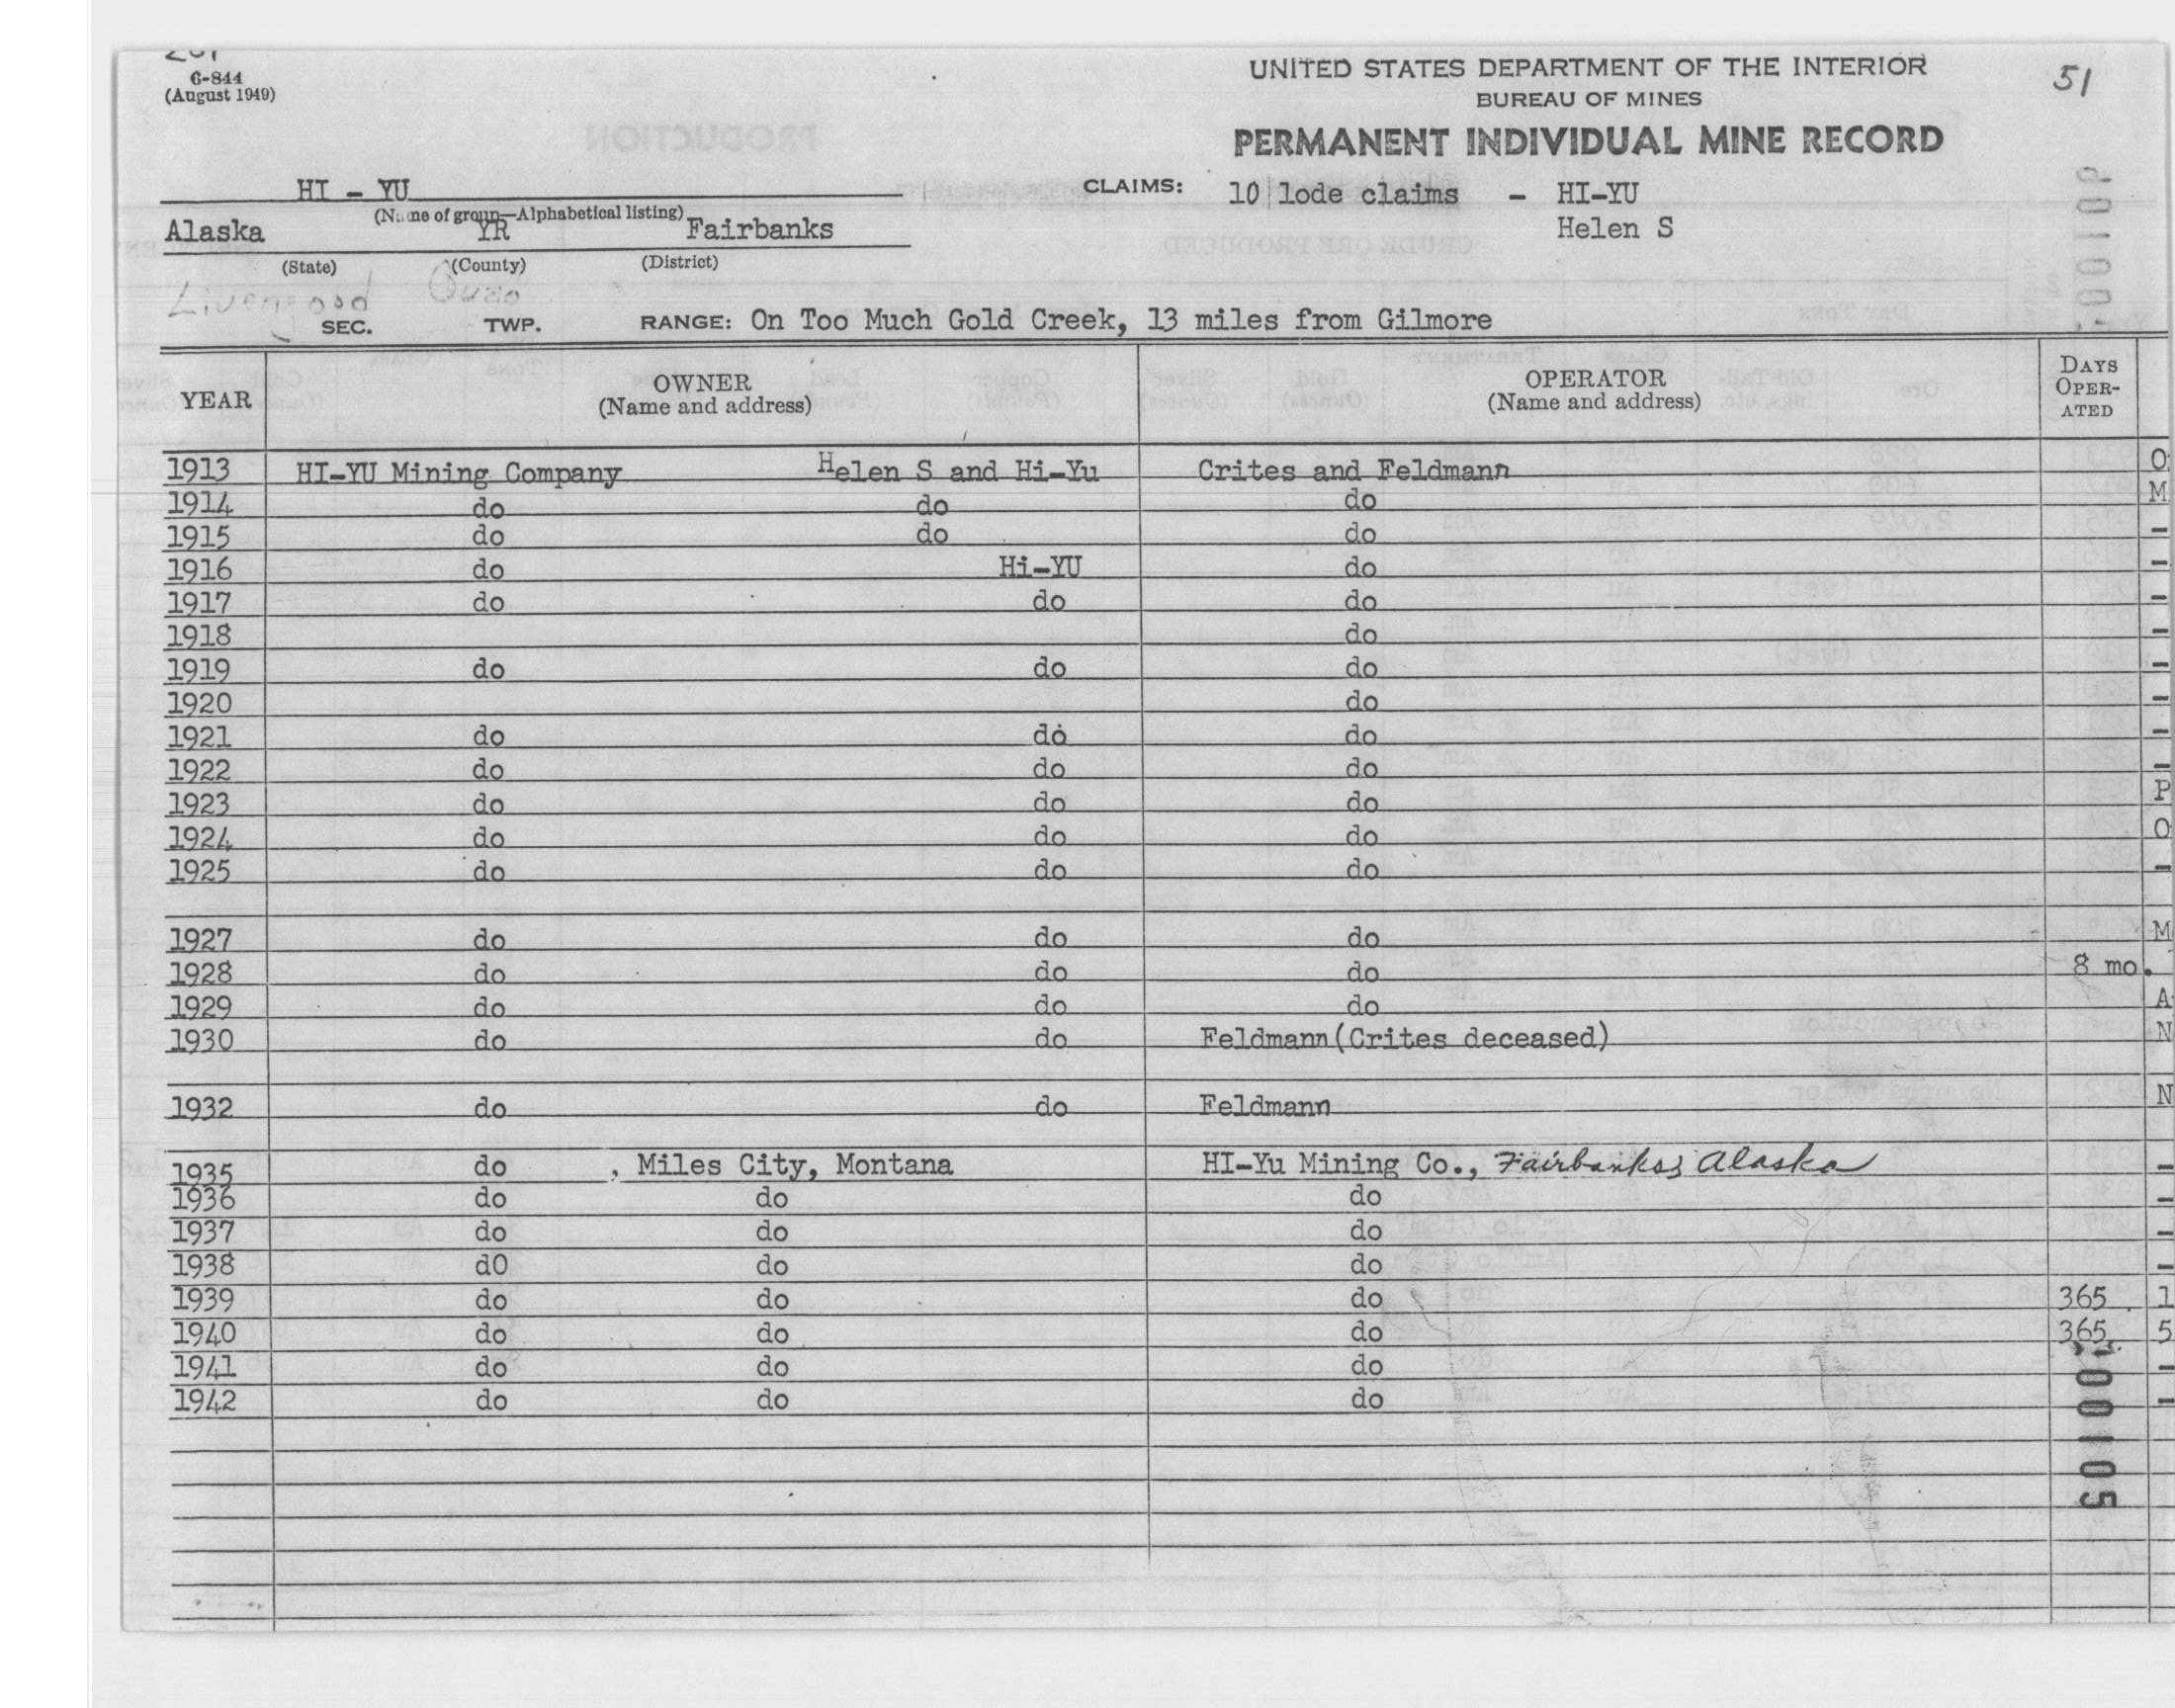 6-844
(August 1949)
UNITED STATES DEPARTMENT OF THE INTERIOR
BUREAU OF MINES
PERMANENT INDIVIDUAL MINE RECORD
51
HI - YU
(Name of group—Alphabetical listing)
CLAIMS: 10 lode claims - HI-YU
Helen S
Alaska YR Fairbanks
(State) (County) (District)
Livengood Quad
SEC. TWP. RANGE: On Too Much Gold Creek, 13 miles from Gilmore
YEAR OWNER (Name and address) OPERATOR (Name and address) DAYS OPER-ATED
1913 HI-YU Mining Company Helen S and Hi-Yu Crites and Feldmann O
1914 do do do M
1915 do do do -
1916 do Hi-YU do -
1917 do do do -
1918 do -
1919 do do do -
1920 do -
1921 do do do -
1922 do do do -
1923 do do do P
1924 do do do O
1925 do do do -
1927 do do do M
1928 do do do 8 mo.
1929 do do do A
1930 do do Feldmann(Crites deceased) N
1932 do do Feldmann N
1935 do , Miles City, Montana HI-Yu Mining Co., Fairbanks, Alaska -
1936 do do do -
1937 do do do -
1938 dO do do -
1939 do do do 365 1
1940 do do do 365 5
1941 do do do -
1942 do do do -
100105